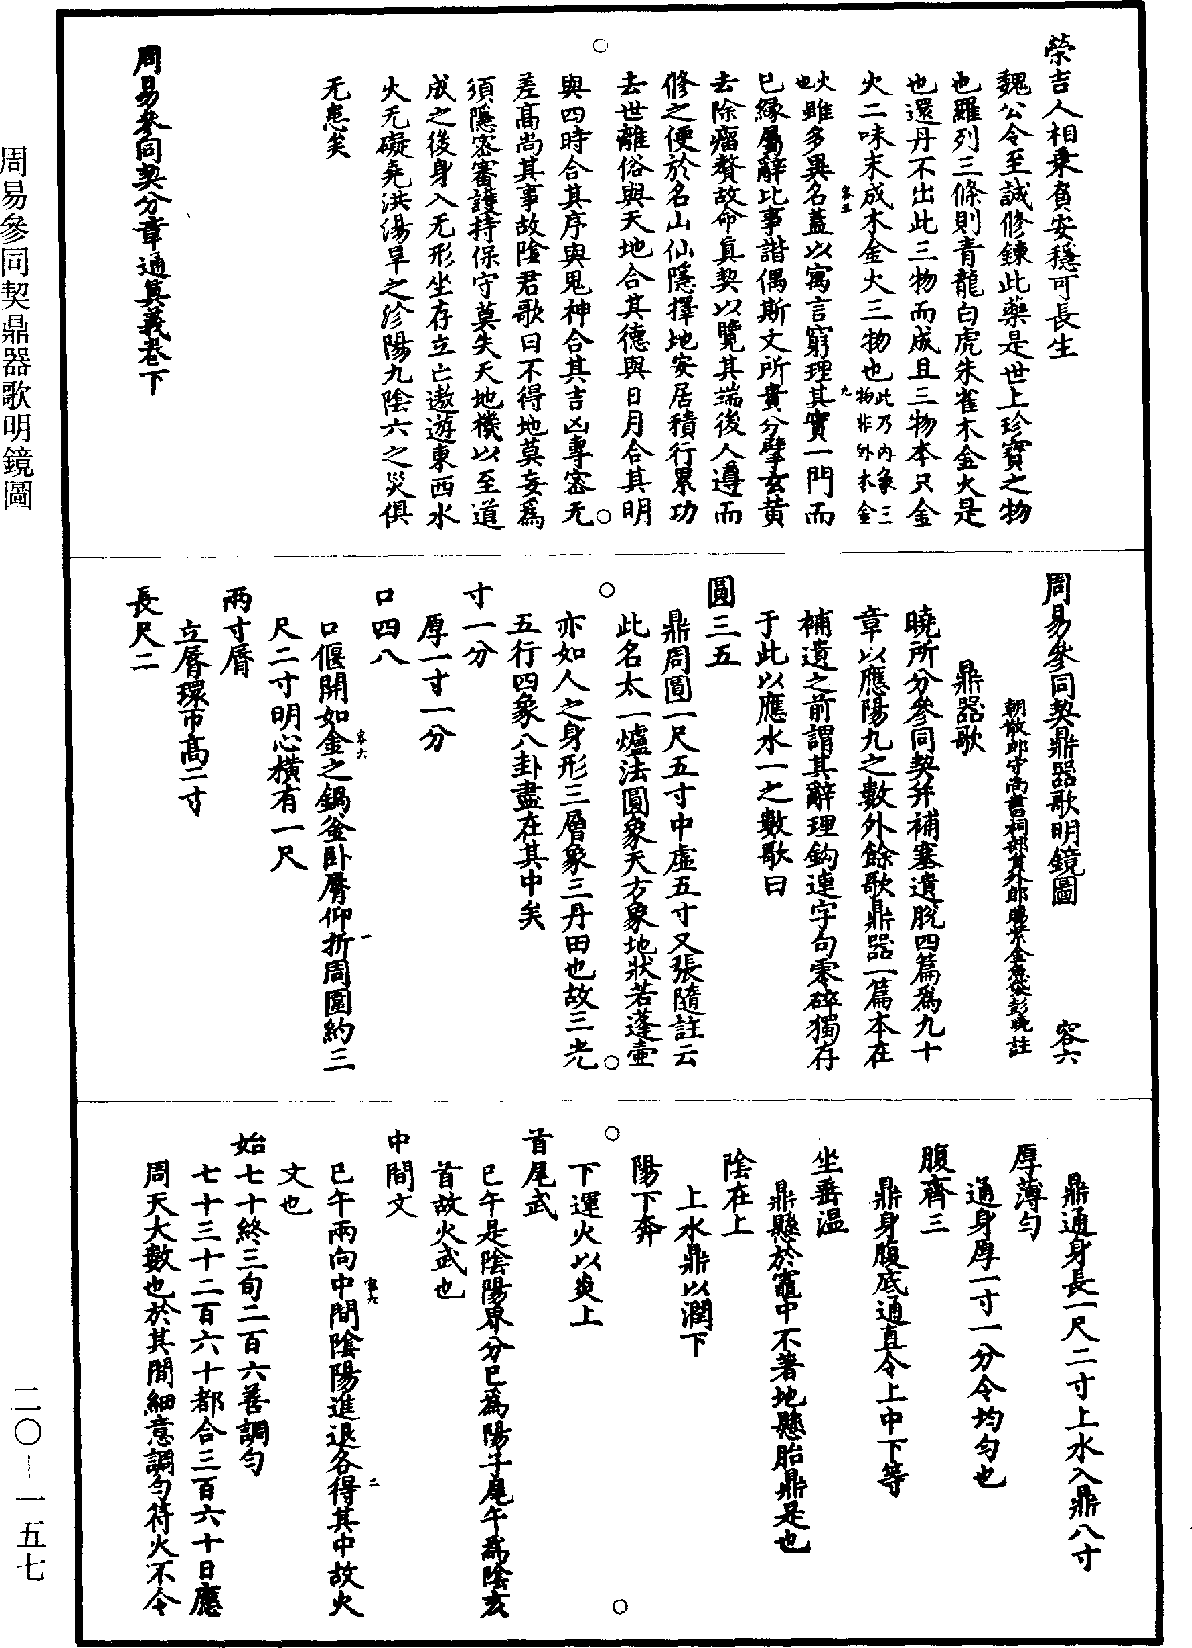 榮吉人相乘負安穩可長生
魏公令至誠修鍊此藥是世上珍寶之物
也羅列三條則青龍白虎朱雀木金火是
也還丹不出此三物而成且三物本只金
火二味末成木金火三物也此乃内象三物非外木金
火也雖多異名蓋以寓言窮理其實一門而
已緣屬辭比事諧偶斯文所貴分擘玄黃
去除瘤贅故命真契以覽其端後人遵而
修之便於名山仙隱擇地安居積行累功
去世離俗與天地合其德與日月合其明
與四時合其序與鬼神合其吉凶專密无
差高尚其事故陰君歌曰不得地莫妄爲
須隱密審護持保守莫失天地機以至道
成之後身入无形坐存立亡遨遊東西水
火无礙堯洪湯旱之沴陽九陰六之災俱
无患矣
周易參同契分章通真義卷下
周易參同契鼎器歌明鏡圖 容六
朝散郎守尚書祠部員外郎賜紫金魚袋彭曉註
鼎器歌
曉所分參同契并補塞遺脫四篇爲九十
章以應陽九之數外餘歌鼎器一篇本在
補遺之前謂其辭理鈎連字句零碎獨存
于此以應水一之數歌曰
圓三五
鼎周圓一尺五寸中虛五寸又張隨註云
此名太一爐法圓象天方象地狀若蓬壺
亦如人之身形三層象三丹田也故三光
五行四象八卦盡在其中矣
寸一分
厚一寸一分
口四八
口偃開如金之鍋釜卧脣仰折周圓約三
尺二寸明心橫有一尺
兩寸脣
立脣環帀高二寸
長尺二
鼎通身長一尺二寸上水入鼎八寸
厚薄勻
通身厚一寸一分令均勻也
腹齊三
鼎身腹底通直令上中下等
坐垂温
鼎懸於竈中不著地懸胎鼎是也
陰在上
上水鼎以潤下
陽下奔
下運火以炎上
首尾武
巳午是陰陽界分巳爲陽子尾午爲陰亥
首故火武也
中間文
巳午兩向中間陰陽進退各得其中故火
文也
始七十終三旬二百六善調勻
七十三十二百六十都合三百六十日應
周天大數也於其間細意調勻符火不令
周易參同契鼎器歌明鏡圖
二〇－一五七